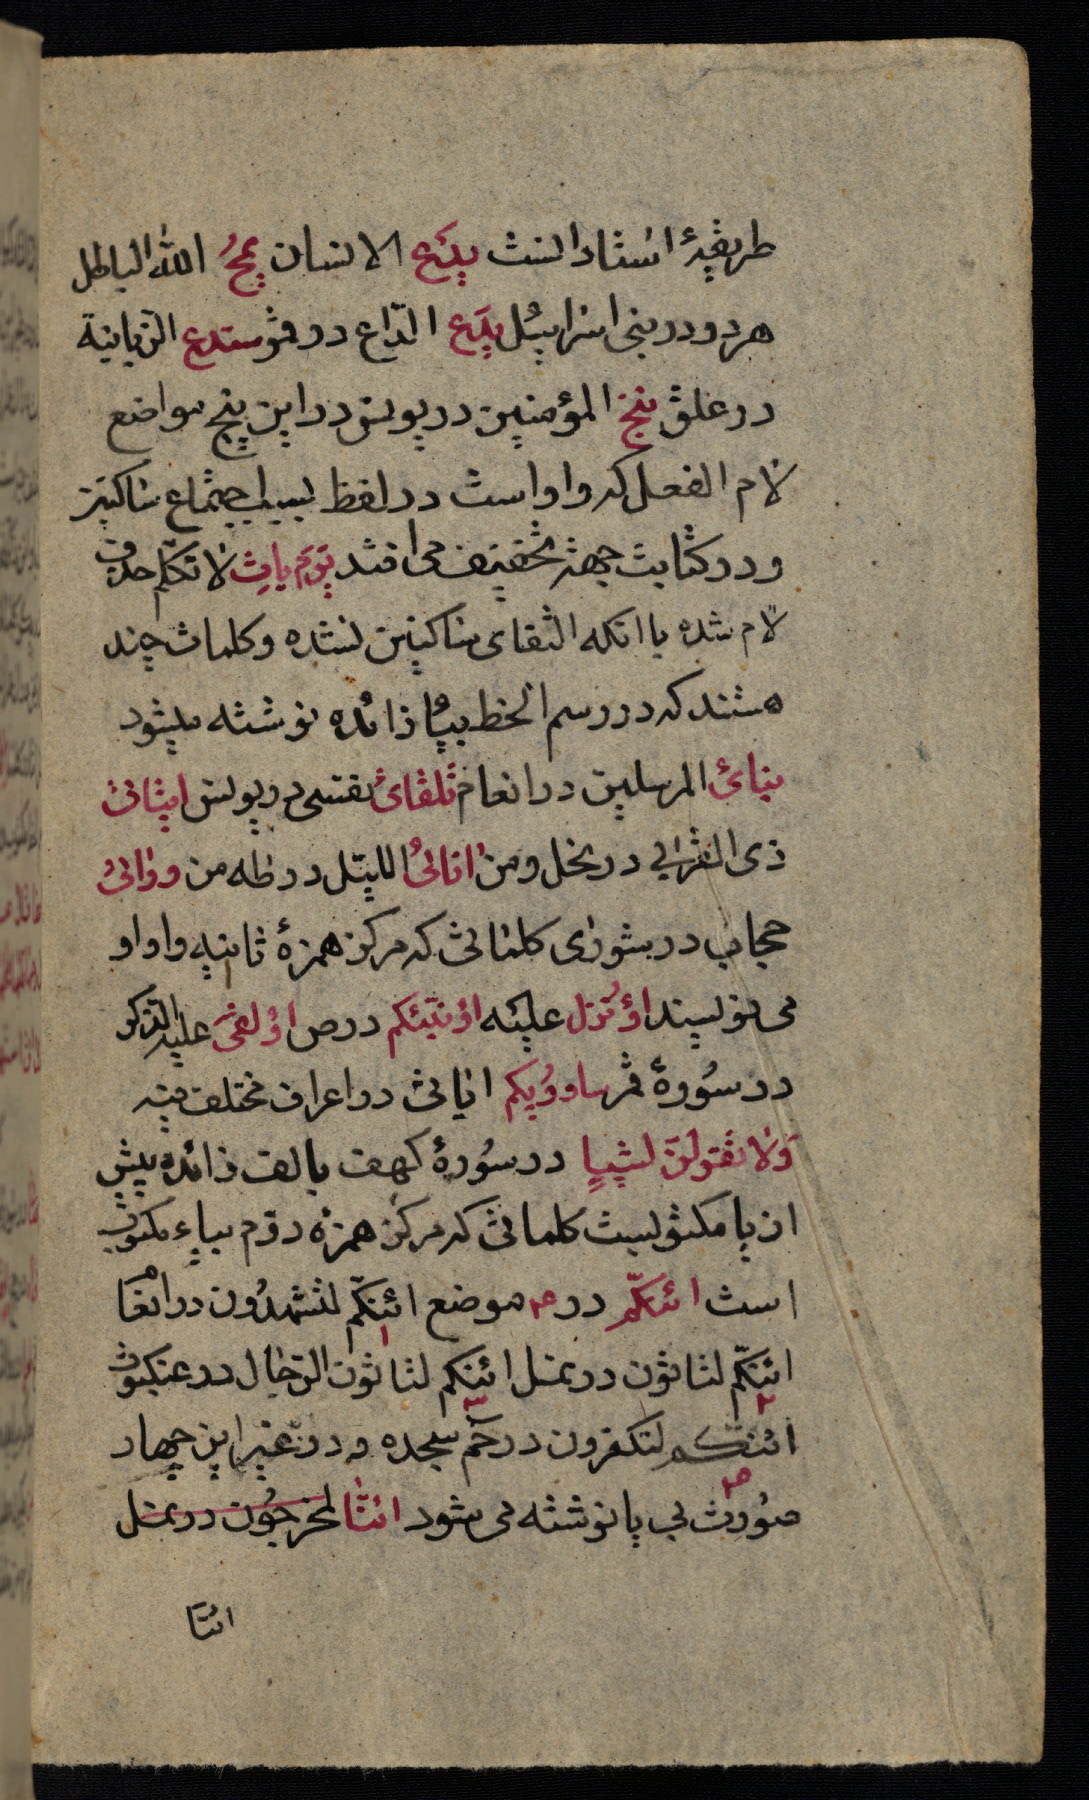 طریقهٔ استاد النست یدع الانسان یمح الله الباطل
هر دو در بنی اسرائیل یدع الدّاع در قمر سندع الزبانیة
در علق ننج المؤمنین در یونس در این پنج مواضع
لام الفعل که واو است در لفظ بسبب اجتماع ساکنین
و در کتابت جهة تخفیف می افتد یوم یات لا تکلّم حذف
لام شده با آنکه التقای ساکنین نشده و کلمات چند
هستند که در رسم الخط بیا زائده نوشته میشود
نبائ المرسلین در انعام تلقائ نفسی در یونس ایتائ
ذی القربی در نحل ومن انائ اللیل در طه من ورائ
حجاب در شوری کلماتی که مرکز همزهٔ ثانیه واو او
می نویسند اؤنزل علیه اؤنبئکم در ص اؤلقی علیه الذکر
در سورهٔ قمر ساوریکم ایاتی در اعراف مختلف فیه
ولا تقولنّ لشایٍ در سورهٔ کهف بالف زائده پیش
از یا مکتوبست کلماتی که مرکز همزه دوم بیاء مکتوب
است ائنّکم در ۴ موضع ائنّکم لتشهدون در انعام ۱
ائنّکم لتاتون در نمل ۲ ائنکم لتاتون الرّجال در عنکبوت ۳
ائنکم لتکفرون در حم سجده ۴ و در غیر این چهار
صورت بی یا نوشته می شود ائنّا لمخرجون در نمل
ائنّا